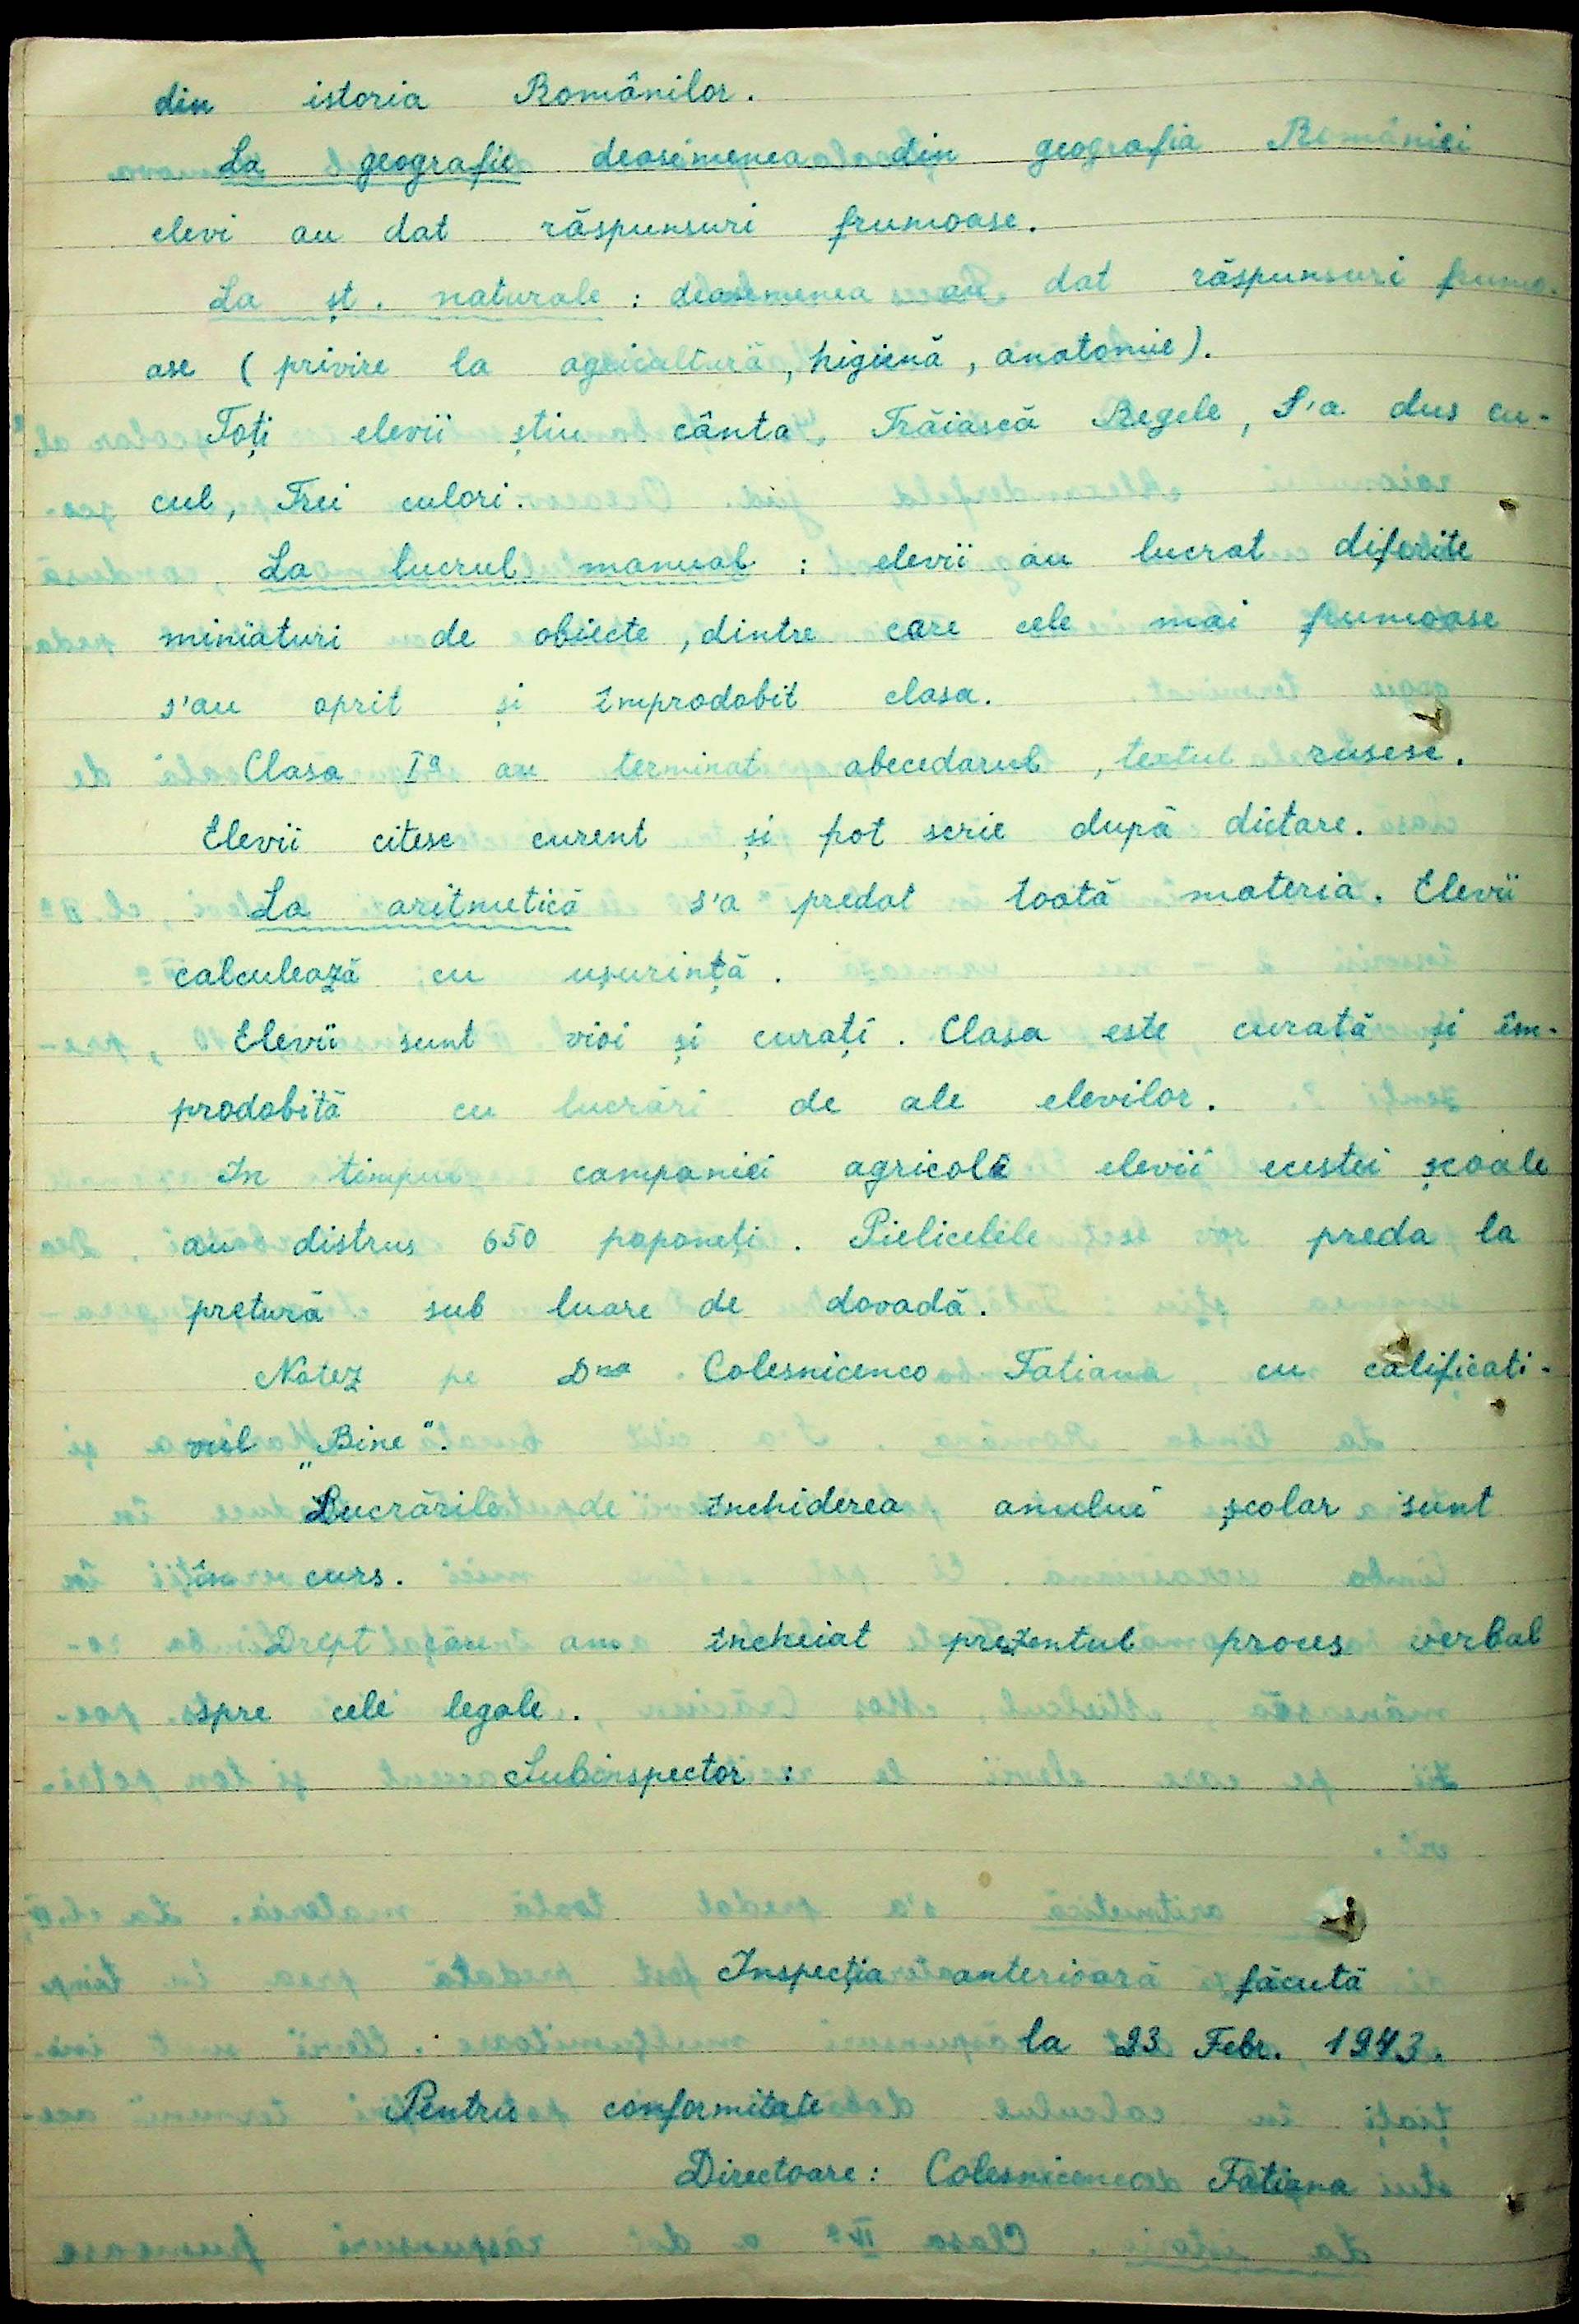 din istoria Românilor.
La geografie deasemenea din geografia României
elevi au dat răspunsuri frumoase.
La șt. naturale: deasemenea au dat răspunsuri frumo-
ase (privire la agricultură, higienă, anatomie).
Toți elevii știu cânta Trăiască Regele, S'a dus cu-
cul, Trei culori.
La lucrul manual: elevii au lucrat diferite
miniaturi de obiecte, dintre care cele mai frumoase
s'au oprit și împrodobit clasa.
Clasa Iª au terminat abecedarul, textul rusesc.
Elevii citesc curent și pot scrie după dictare.
La aritmetică s'a predat toată materia. Elevii
calculează cu ușurință.
Elevii sunt vioi și curați. Clasa este curată și îm-
prodobită cu lucrări de ale elevilor.
In timpul campaniei agricole elevii ecestei școale
au distrus 650 popaneți. Pielicelele preda la
pretură sub luare de dovadă.
Notez pe Dna Colesnicenco Tatiana cu calificati-
vul „Bine".
Lucrările de închiderea anului școlar sunt
în curs.
Drept care am încheiat prezentul proces verbal
spre cele legale.
Subinspector:
Inspecția anterioară făcută
la 23 Febr. 1943.
Pentru conformitate
Directoare: Colesnicenco Tatiana